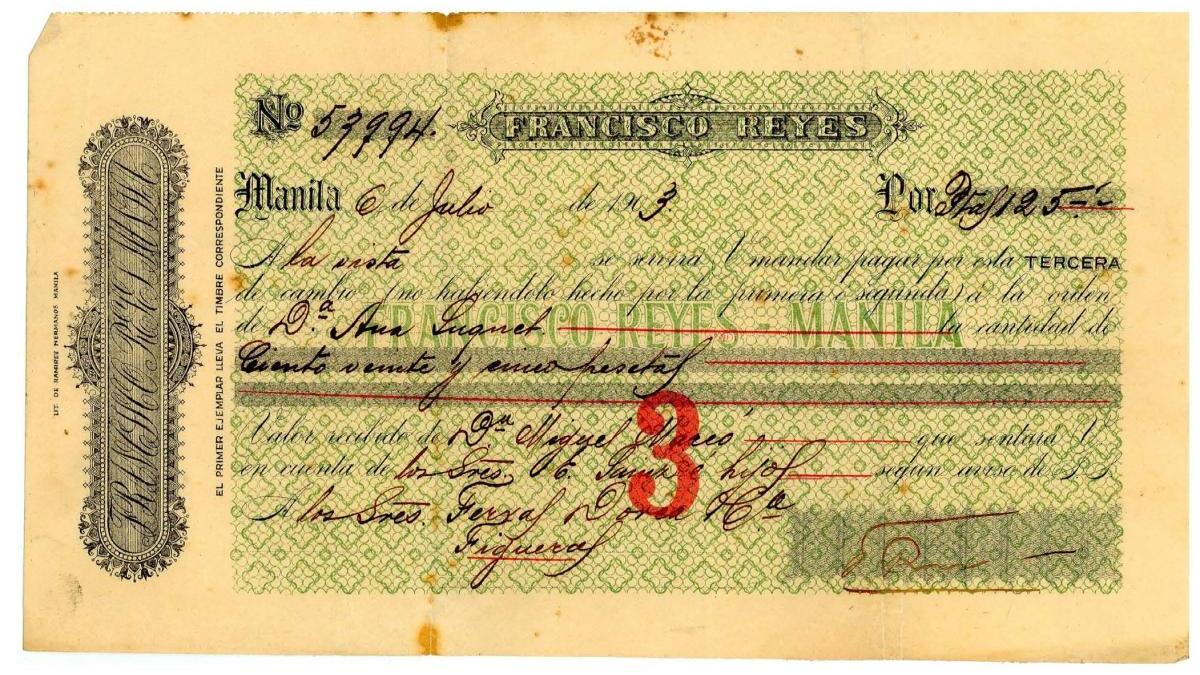 LIT. DE RAMIREZ HERMANOS. MANILA
FRANCISCO REYES
EL PRIMER EJEMPLAR LLEVA EL TIMBRE CORRESPONDIENTE
No 53994. FRANCISCO REYES
Manila 6 de Julio de 1903. Por Ptas 125
A la vista se servirá V mandar pagar por esta TERCERA
de cambio (no habiéndolo hecho por la primera ó segunda) á la orden
de D.a Ana Suquet la cantidad de
FRANCISCO REYES MANILA
Ciento veinte y cinco pesetas
3
Valor recibido de Dn Miguel que sentará V.
en cuenta de los Sres. hijos según aviso de S. S.
A los Sres. Ferxas Cia
Figueras